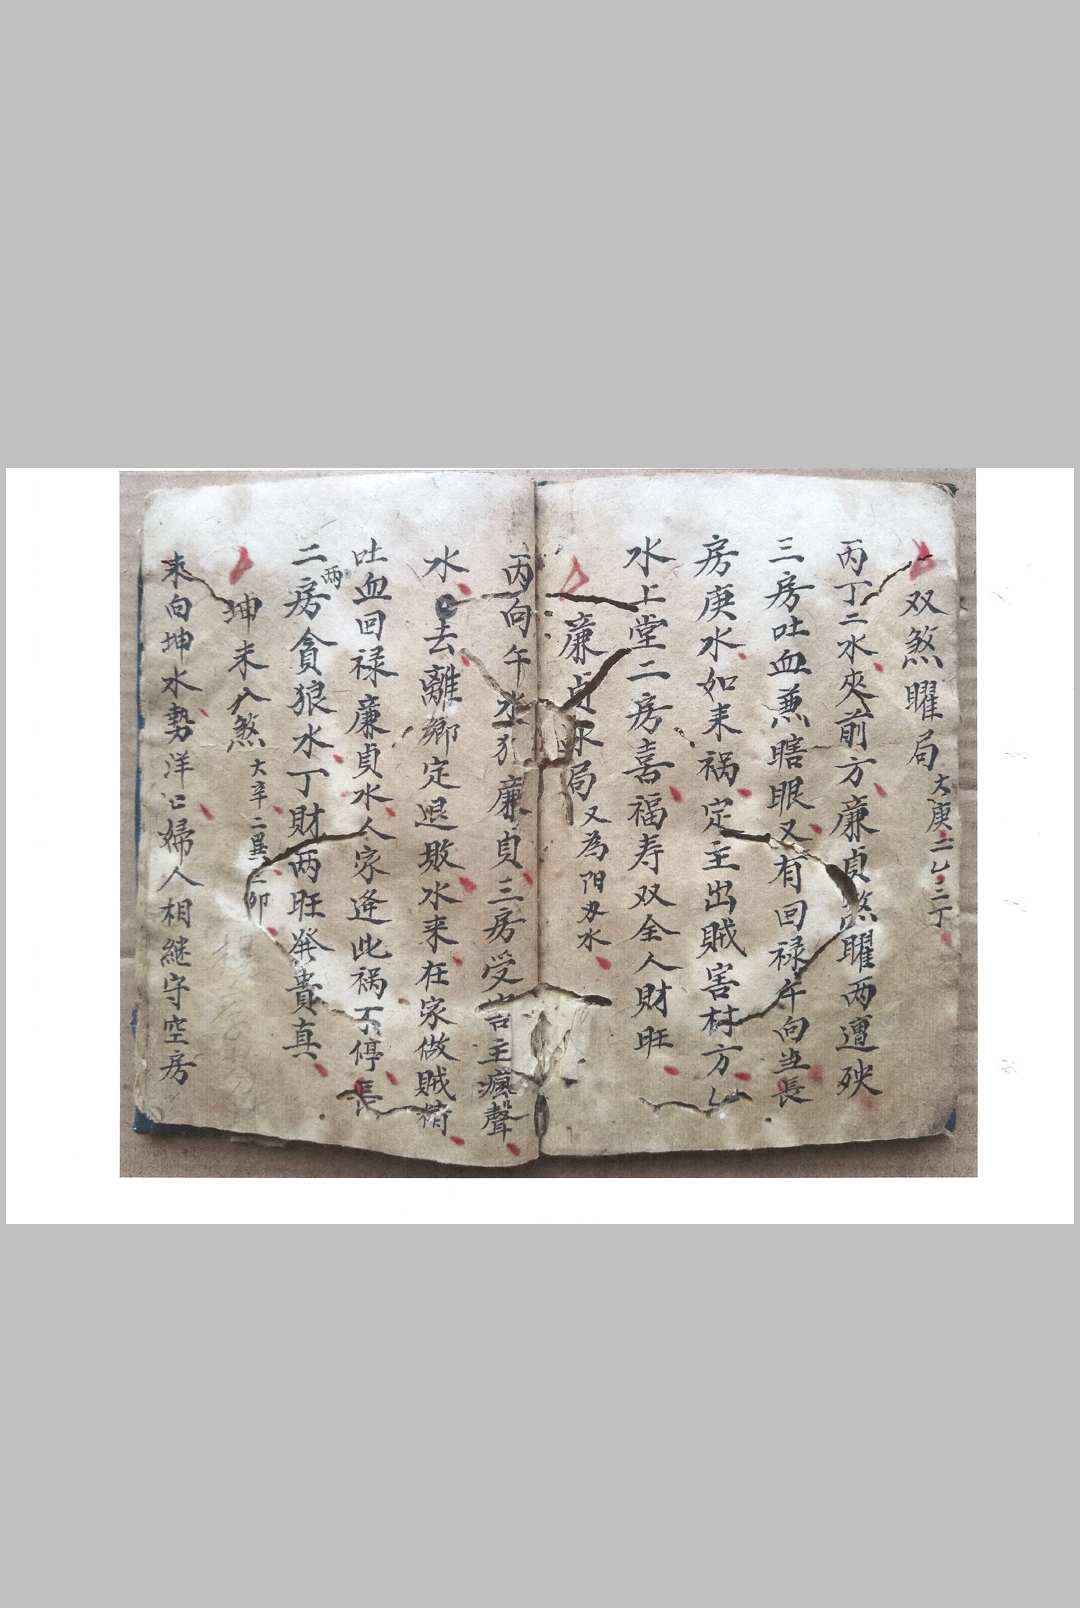 双煞曜局 大庚二乙三丁
丙丁二水夾前方廉貞煞曜两遭殃
三房吐血兼瞎眼又有回禄午向当長
房庚水如来祸定主出賊害村方
水上堂二房喜福寿双全人財旺
廉貞水局 又為阳刃水
丙向午水 廉貞三房受 主瘋聾
水去離鄉定退敗水来在家做賊
吐血回禄廉貞水人家逢此祸不停長
二两房貪狼水丁財两旺発貴真
坤未八煞 大辛二巽三卯
未向坤水势洋公婦人相継守空房